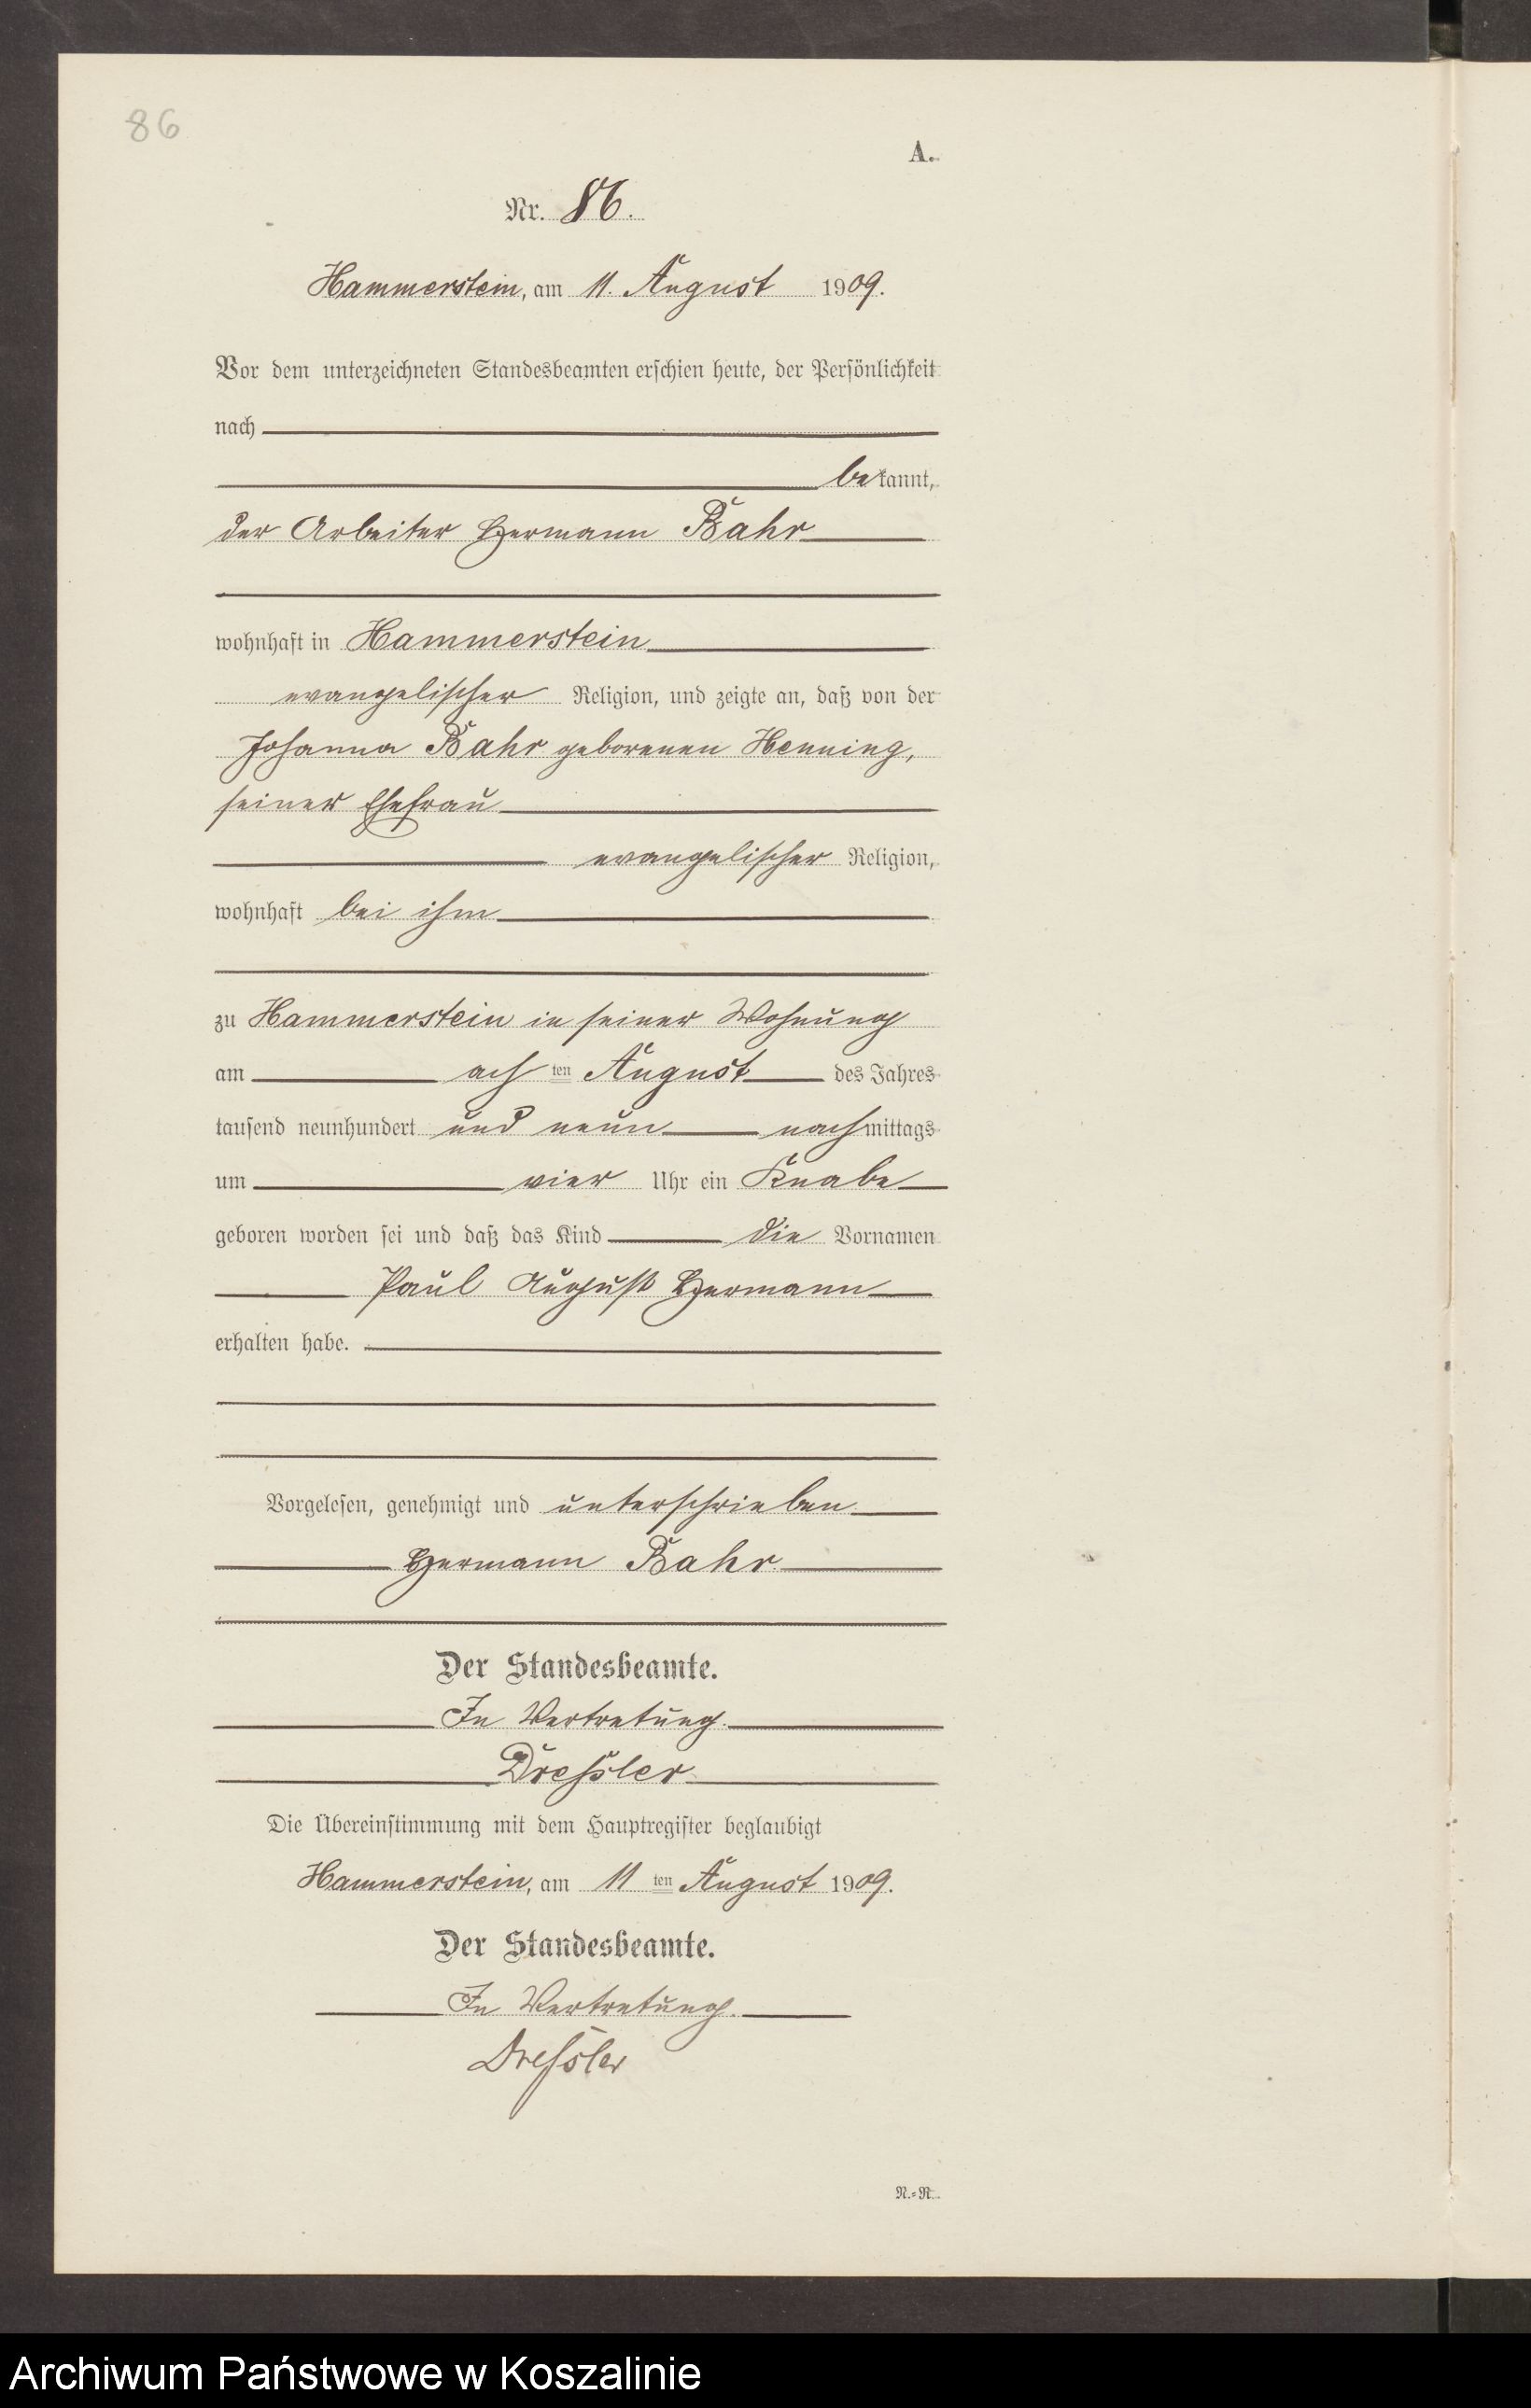 86
A.
Nr. 86.
Hammerstein, am 11. August 1909.
Vor dem unterzeichneten Standesbeamten erschien heute, der Persönlichkeit
nach
bekannt,
der Arbeiter Hermann Bahr
wohnhaft in Hammerstein
evangelischer Religion, und zeigte an, daß von der
Johanna Bahr geborenen Henning,
seiner Ehefrau
evangelischer Religion,
wohnhaft bei ihm
zu Hammerstein in seiner Wohnung
am achten August des Jahres
tausend neunhundert und neun nachmittags
um vier Uhr ein Knabe
geboren worden sei und daß das Kind die Vornamen
Paul August Hermann
erhalten habe.
Vorgelesen, genehmigt und unterschrieben
Hermann Bahr
Der Standesbeamte.
In Vertretung.
Dressler
Die Übereinstimmung mit dem Hauptregister beglaubigt
Hammerstein, am 11ten August 1909.
Der Standesbeamte.
In Vertretung.
Dressler
N.-R.
Archiwum Państwowe w Koszalinie